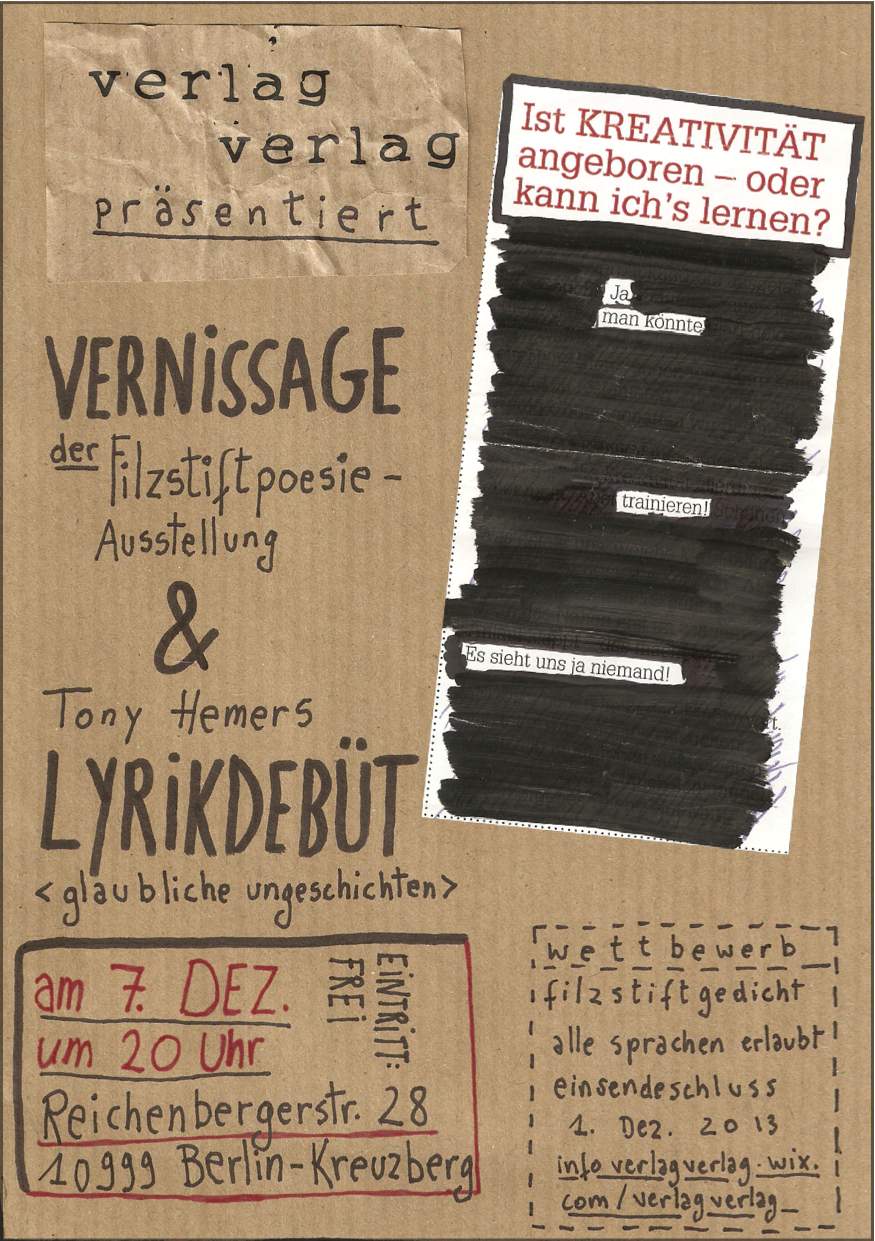 verlag
verlag
präsentiert
Ist KREATIVITÄT
angeboren – oder
kann ich's lernen?
Ja
man könnte
trainieren!
Es sieht uns ja niemand!
VERNiSSAGE
der Filzstiftpoesie-
Ausstellung
&
Tony Hemers
LYRiKDEBÜT
<glaubliche ungeschichten>
am 7. DEZ.
um 20 Uhr
EiNTRiTT:
FREi
Reichenbergerstr. 28
10999 Berlin-Kreuzberg
wettbewerb
filzstiftgedicht
alle sprachen erlaubt
einsendeschluss
1. Dez. 2013
info verlagverlag.wix.
com/verlagverlag_